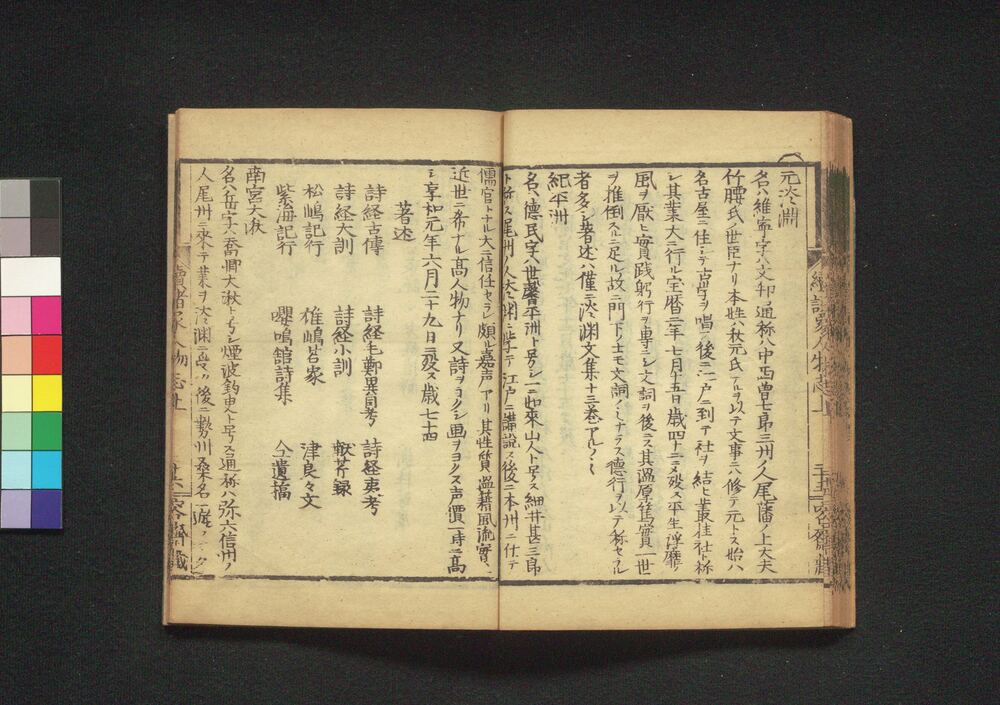 元淡淵
名ハ維寧字ハ文邦通称ハ中西曽七郎三州ノ人尾藩ノ上大夫
竹腰氏ノ世臣ナリ本姓ハ秋元氏ナルヲ以テ文事ニハ修テ元トス始ハ
名古屋ニ住シテ古学ヲ唱ヘ後ニ江戸ニ到テ社ヲ結ヒ叢桂社ト称
シ其業大ニ行ル宝暦二年七月十五日歳四十二ニメ歿ス平生浮靡ノ
風ヲ厭ヒ實践躬行ヲ専ニシ文詞ヲ後ニス其温厚篤實一世
ヲ推倒スルニ足ル故ニ門下ノ士モ文詞ノミナラス德行ヲ以テ称セラルヽ
者多シ著述ハ僅ニ淡淵文集十三巻アルノミ
紀平洲
名ハ德民字ハ世馨平洲ト号シ一ニ如來山人ト号ス細井甚三郎
ト称ス尾州ノ人淡淵ニ学テ江戸ニ講説ス後ニ本州ニ仕テ
儒官トナル大ニ信任セラレ頗ル嘉声アリ其性質温藉風流實ニ
近世ニ希ナル高人物ナリ又詩ヲヨクシ画ヲヨクス声價一時ニ高
シ享和元年六月二十九日ニ歿ス歳七十四
著述
詩経古傳 詩経毛鄭異同考 詩経夷考
詩経大訓 詩経小訓 献芹録
松嶋記行 雄嶋苔家 津良々文
紫海記行 嚶鳴舘詩集 仝遺稿
南宮大湫
名ハ岳字ハ喬卿大湫ト号シ煙波釣叟ト号ス通称ハ弥六信州ノ
人尾州ニ來テ業ヲ淡淵ニ受ク後ニ勢州桑名ニ